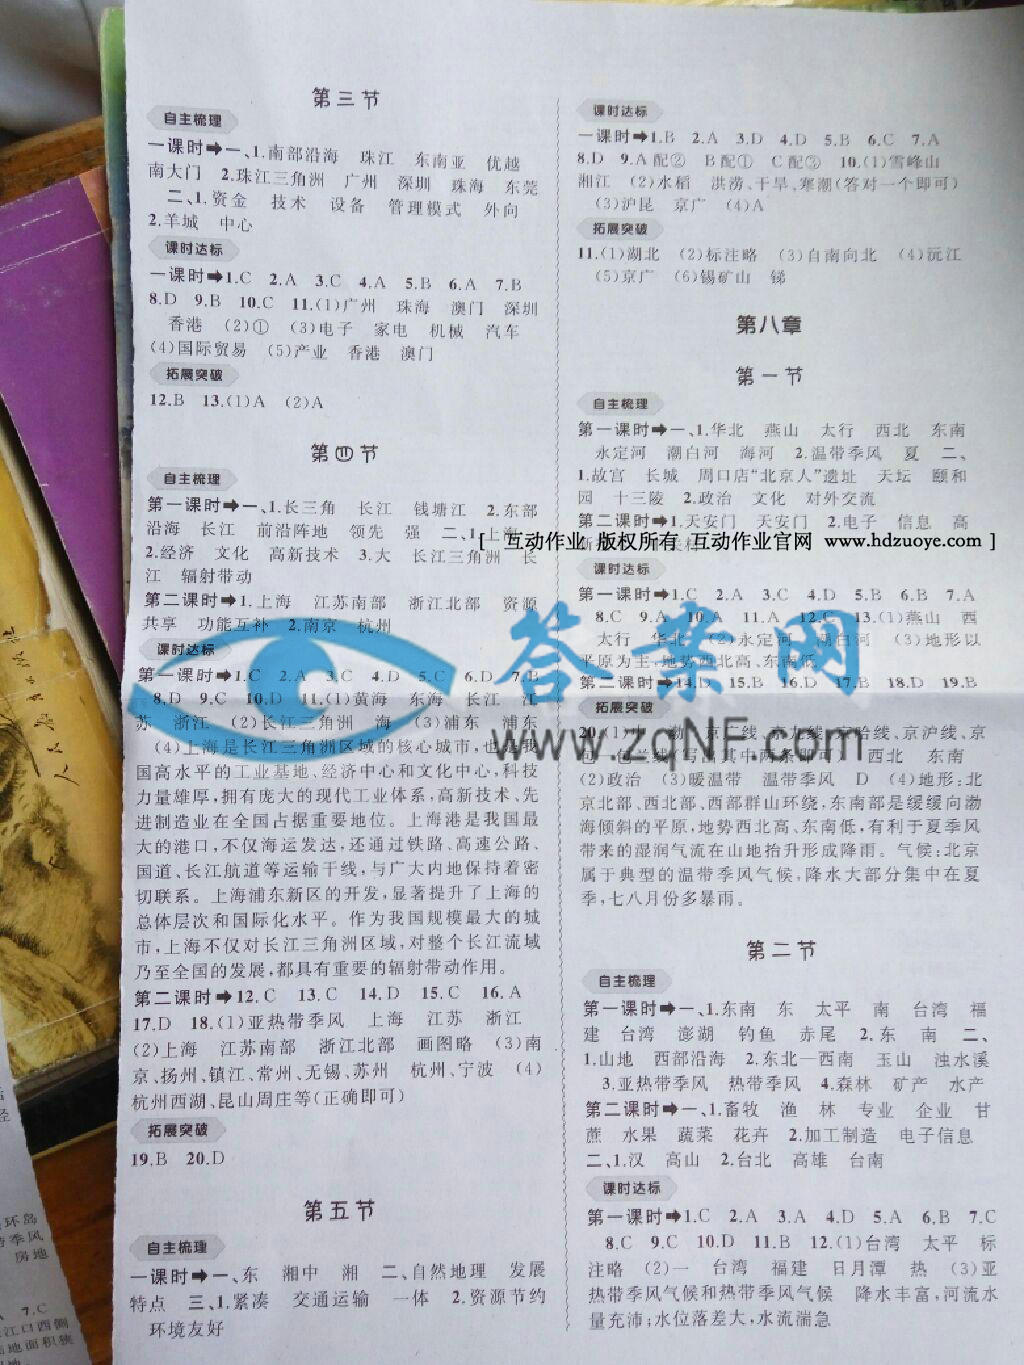 第三节
自主梳理
一课时➔一、1.南部沿海 珠江 东南亚 优越
南大门 2.珠江三角洲 广州 深圳 珠海 东莞
二、1.资金 技术 设备 管理模式 外向
2.羊城 中心
课时达标
一课时➔1.C 2.A 3.C 4.A 5.B 6.A 7.B
8.D 9.B 10.C 11.(1)广州 珠海 澳门 深圳
香港 (2)① (3)电子 家电 机械 汽车
(4)国际贸易 (5)产业 香港 澳门
拓展突破
12.B 13.(1)A (2)A
第四节
自主梳理
第一课时➔一、1.长三角 长江 钱塘江 2.东部
沿海 长江 前沿阵地 领先 强 二、1.上海
2.经济 文化 高新技术 3.大 长江三角洲 长
江 辐射带动
第二课时➔1.上海 江苏南部 浙江北部 资源
共享 功能互补 2.南京 杭州
课时达标
第一课时➔1.C 2.A 3.C 4.D 5.C 6.D 7.B
8.D 9.C 10.D 11.(1)黄海 东海 长江 江
苏 浙江 (2)长江三角洲 海 (3)浦东 浦东
(4)上海是长江三角洲区域的核心城市,也是我
国高水平的工业基地、经济中心和文化中心,科技
力量雄厚,拥有庞大的现代工业体系,高新技术、先
进制造业在全国占据重要地位。上海港是我国最
大的港口,不仅海运发达,还通过铁路、高速公路、
国道、长江航道等运输干线,与广大内地保持着密
切联系。上海浦东新区的开发,显著提升了上海的
总体层次和国际化水平。作为我国规模最大的城
市,上海不仅对长江三角洲区域,对整个长江流域
乃至全国的发展,都具有重要的辐射带动作用。
第二课时➔12.C 13.C 14.D 15.C 16.A
17.D 18.(1)亚热带季风 上海 江苏 浙江
(2)上海 江苏南部 浙江北部 画图略 (3)南
京、扬州、镇江、常州、无锡、苏州 杭州、宁波 (4)
杭州西湖、昆山周庄等(正确即可)
拓展突破
19.B 20.D
第五节
自主梳理
一课时➔一、东 湘中 湘 二、自然地理 发展
特点 三、1.紧凑 交通运输 一体 2.资源节约
环境友好
课时达标
一课时➔1.B 2.A 3.D 4.D 5.B 6.C 7.A
8.D 9.A配② B配① C配③ 10.(1)雪峰山
湘江 (2)水稻 洪涝、干旱、寒潮(答对一个即可)
(3)沪昆 京广 (4)A
拓展突破
11.(1)湖北 (2)标注略 (3)自南向北 (4)沅江
(5)京广 (6)锡矿山 锑
第八章
第一节
自主梳理
第一课时➔一、1.华北 燕山 太行 西北 东南
永定河 潮白河 海河 2.温带季风 夏 二、
1.故宫 长城 周口店“北京人”遗址 天坛 颐和
园 十三陵 2.政治 文化 对外交流
第二课时➔1.天安门 天安门 2.电子 信息 高
[ 互动作业 版权所有 互动作业官网 www.hdzuoye.com ]
课时达标
第一课时➔1.C 2.A 3.C 4.D 5.B 6.B 7.A
8.C 9.A 10.A 11.A 12.C 13.(1)燕山 西
太行 华北 (2)永定河 潮白河 (3)地形以
平原为主,地势西北高、东南低
第二课时➔14.D 15.B 16.D 17.B 18.D 19.B
答案网
www.zqNF.com
拓展突破
20.(1) 京广线、京九线、京哈线、京沪线、京
包—包兰线(写出其中两条即可) 西北 东南
(2)政治 (3)暖温带 温带季风 D (4)地形:北
京北部、西北部、西部群山环绕,东南部是缓缓向渤
海倾斜的平原,地势西北高、东南低,有利于夏季风
带来的湿润气流在山地抬升形成降雨。气候:北京
属于典型的温带季风气候,降水大部分集中在夏
季,七八月份多暴雨。
第二节
自主梳理
第一课时➔一、1.东南 东 太平 南 台湾 福
建 台湾 澎湖 钓鱼 赤尾 2.东 南 二、
1.山地 西部沿海 2.东北—西南 玉山 浊水溪
3.亚热带季风 热带季风 4.森林 矿产 水产
第二课时➔一、1.畜牧 渔 林 专业 企业 甘
蔗 水果 蔬菜 花卉 2.加工制造 电子信息
二、1.汉 高山 2.台北 高雄 台南
课时达标
第一课时➔1.C 2.A 3.A 4.D 5.A 6.B 7.C
8.C 9.C 10.D 11.B 12.(1)台湾 太平 标
注略 (2)一 台湾 福建 日月潭 热 (3)亚
热带季风气候和热带季风气候 降水丰富,河流水
量充沛;水位落差大,水流湍急
环岛
季风
房地
7.C
江口西侧
地面积狭